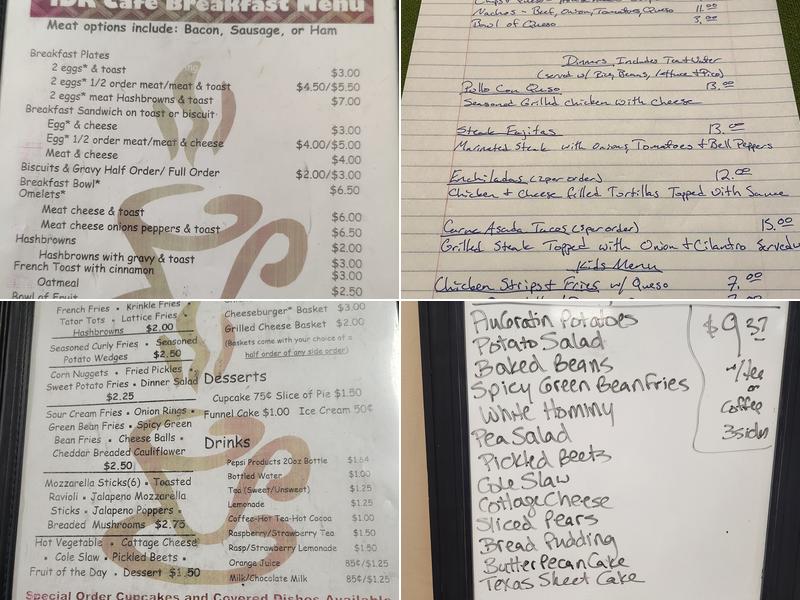 IDK Cafe Breakfast Menu
Meat options include: Bacon, Sausage, or Ham
Breakfast Plates
2 eggs* & toast $3.00
2 eggs* 1/2 order meat/meat & toast $4.50/$5.50
2 eggs* meat Hashbrowns & toast $7.00
Breakfast Sandwich on toast or biscuit
Egg* & cheese $3.00
Egg* 1/2 order meat/meat & cheese $4.00/$5.00
Meat & cheese $4.00
Biscuits & Gravy Half Order/ Full Order $2.00/$3.00
Breakfast Bowl* $6.50
Omelets*
Meat cheese & toast $6.00
Meat cheese onions peppers & toast $6.50
Hashbrowns $2.00
Hashbrowns with gravy & toast $3.00
French Toast with cinnamon $3.00
Oatmeal $2.50
Bowl of Fruit
Nachos - Beef, Onion, Tomatoes, Queso 11.00
Bowl of Queso 3.00
Dinners, Includes Tea or Water
(served w/ Rice, Beans, lettuce & Pico)
Pollo Con Queso 13.00
Seasoned Grilled chicken with cheese
Steak Fajitas 13.00
Marinated Steak with Onions, Tomatoes & Bell Peppers
Enchiladas (2 per order) 12.00
Chicken & Cheese filled Tortillas Topped with Sauce
Carne Asada Tacos (3 per order) 15.00
Grilled Steak Topped with Onion & Cilantro Served w
Kids Menu
Chicken Strips & Fries w/ Queso 7.00
French Fries • Krinkle Fries
Tator Tots • Lattice Fries •
Hashbrowns $2.00
Seasoned Curly Fries • Seasoned
Potato Wedges $2.50
Corn Nuggets • Fried Pickles •
Sweet Potato Fries • Dinner Salad
$2.25
Sour Cream Fries • Onion Rings •
Green Bean Fries • Spicy Green
Bean Fries • Cheese Balls •
Cheddar Breaded Cauliflower
$2.50
Mozzarella Sticks(6) • Toasted
Ravioli • Jalapeno Mozzarella
Sticks • Jalapeno Poppers •
Breaded Mushrooms $2.75
Hot Vegetable • Cottage Cheese
• Cole Slaw • Pickled Beets •
Fruit of the Day • Dessert $1.50
Cheeseburger* Basket $3.00
Grilled Cheese Basket $2.00
(Baskets come with your choice of a
half order of any side order)
Desserts
Cupcake 75¢ Slice of Pie $1.50
Funnel Cake $1.00 Ice Cream 50¢
Drinks
Pepsi Products 20oz Bottle $1.64
Bottled Water $1.00
Tea (Sweet/Unsweet) $1.25
Lemonade $1.25
Coffee-Hot Tea-Hot Cocoa $1.00
Raspberry/Strawberry Tea $1.50
Rasp/Strawberry Lemonade $1.50
Orange Juice 85¢/$1.25
Milk/Chocolate Milk 85¢/$1.25
Special Order Cupcakes and Covered Dishes Available
AuGratin Potatoes
Potato Salad
Baked Beans
Spicy Green Bean Fries
White Hommy
Pea Salad
Pickled Beets
Cole Slaw
Cottage Cheese
Sliced Pears
Bread Pudding
Butter Pecan Cake
Texas Sheet Cake
$9.37
w/tea
or
Coffee
3 sides